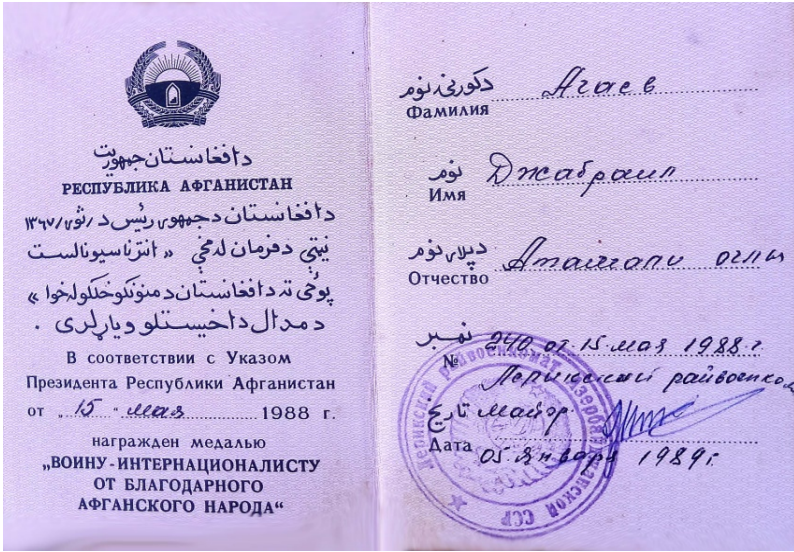 دافغانستان جمهوریت
РЕСПУБЛИКА АФГАНИСТАН
دافغانستان دجمهوری رئیس د / ثور / ۱۳۶۷
نیټې دفرمان له مخې « انترناسیونالست
پوځی ته دافغانستان دمننوکوخلکو له خوا »
دمدال داخیستلو ویاړلری .
В соответствии с Указом
Президента Республики Афганистан
от „15“ мая 1988 г.
награжден медалью
„ВОИНУ-ИНТЕРНАЦИОНАЛИСТУ
ОТ БЛАГОДАРНОГО
АФГАНСКОГО НАРОДА“
دکورنۍ نوم
Фамилия Агаев
نوم
Имя Джабраил
دپلار نوم
Отчество оглы
نمبر
№ 240 от 15 мая 1988 г.
Лерикский райвоенком
تاریخ майор
Дата 05 января 1989 г.
Лерикский райвоенкомат Азербайджанской ССР